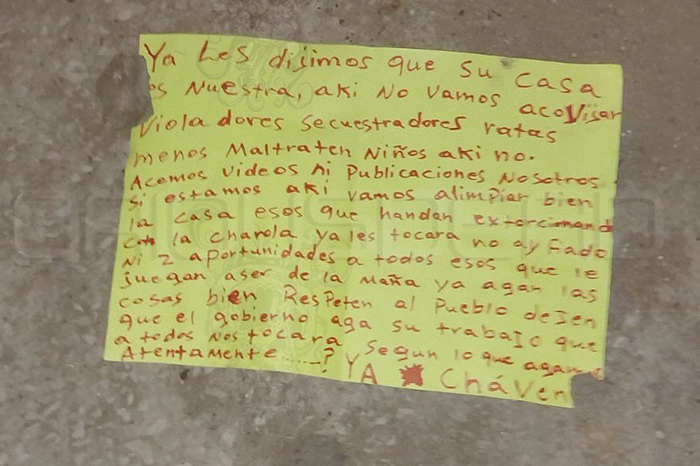 Ya Les dijimos que su casa
es Nuestra, aki No vamos acoVijar
Viola dores secuestradores ratas
menos Maltraten Niños aki no.
Acemos Videos ni Publicaciones Nosotros
Si estamos aki vamos alimpiar bien
la casa esos que handan extorcimando
con la charola ya les tocara no ay Fado
Ni 2 aportunidades a todos esos que le
juegan aser de la Maña ya agan las
cosas bien Respeten al Pueblo dejen
que el gobierno aga su trabajo que
a todos Nos tocara Segun lo que agamos
Atentamente.....? YA Cháven